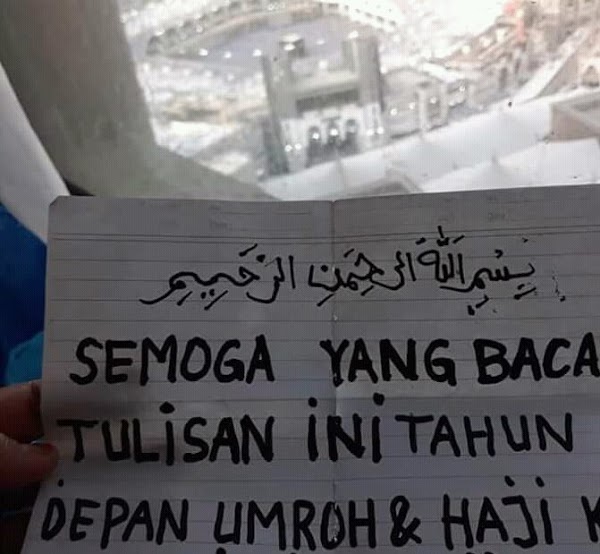 بِسْمِ اللَّهِ الرَّحْمَنِ الرَّحِيمِ
SEMOGA YANG BACA
TULiSAN iNi TAHUN
DEPAN UMROH & HAJi